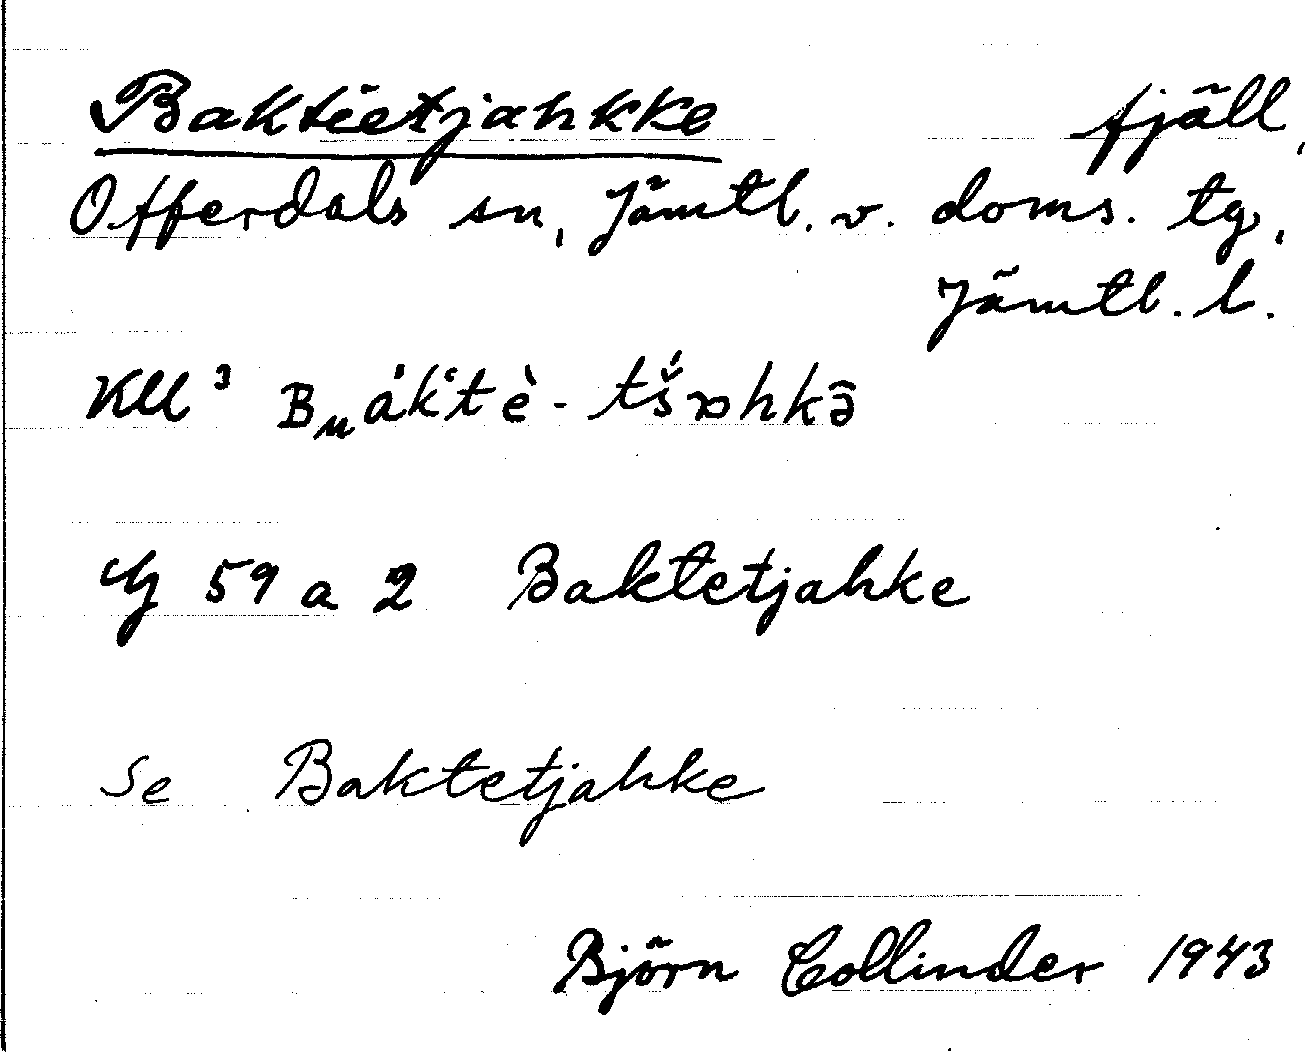 Baktietjahkke fjäll,
Offerdals sn, Jämtl. v. doms. tg,
Jämtl. l.
KM³
G 59 a 2 Baktetjahke
Se Baktetjahke
Björn Collinder 1943